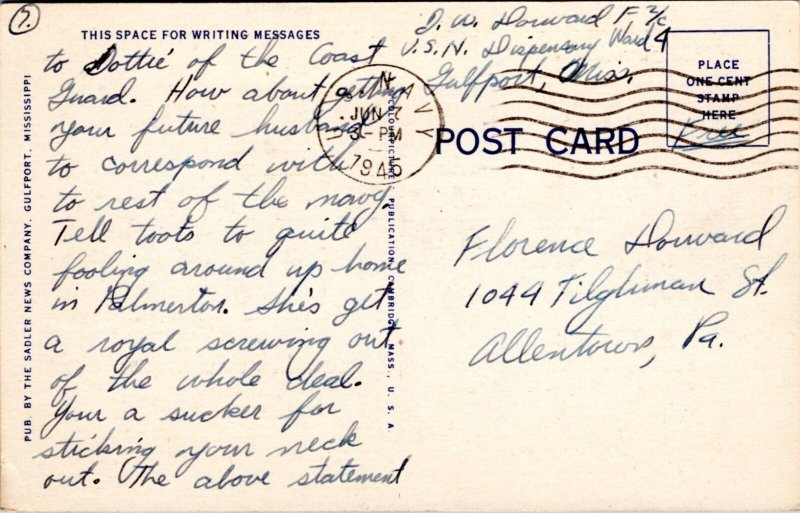 7.
THIS SPACE FOR WRITING MESSAGES
to Dottie of the Coast
Guard. How about getting
your future husband
to correspond with
to rest of the navy.
Tell toots to quite
fooling around up home
in Palmerton. She's get
a royal screwing out
of the whole deal.
Your a sucker for
sticking your neck
out. The above statement
PUB. BY THE SADLER NEWS COMPANY, GULFPORT, MISSISSIPPI
COLOURPICTURE PUBLICATION CAMBRIDGE, MASS., U. S. A.
D. W. Dorward F 2/c
U.S.N. Dispensary Ward 4
Gulfport, Miss.
U. S. NAVY
JUN 7
3-PM
1945
POST CARD
PLACE
ONE CENT
STAMP
HERE
Free
Florence Dorward
1044 Tilghman St.
Allentown, Pa.